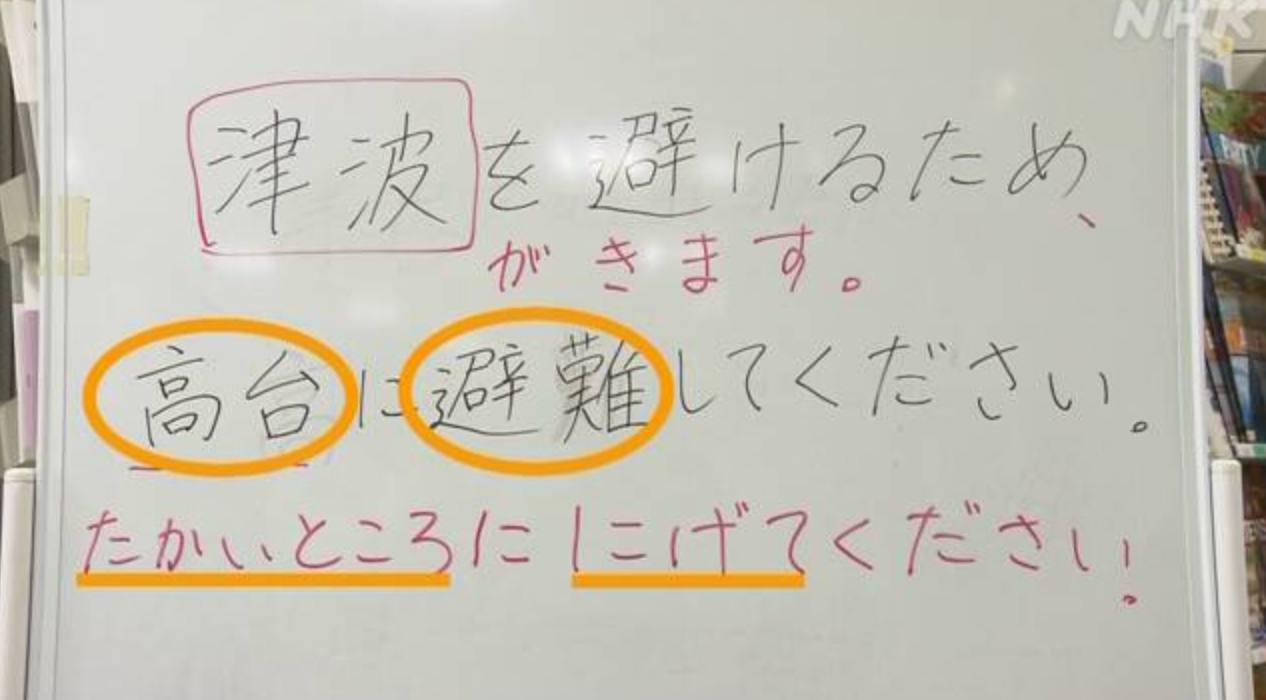 NHK
津波を避けるため、
がきます。
高台に避難してください。
たかいところににげてください!